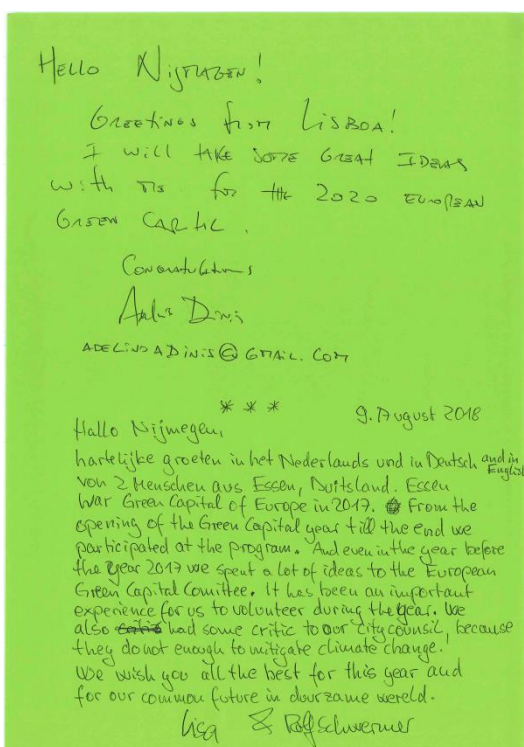 HELLO NijMEGEN!
GREETINGS from LiSBOA!
I will TAKE SOME GREAT IDEAS
with ME for tHE 2020 EUROPEAN
GREEN CAPITAL.
CONGRATULATIONS
DiNiS
ADELINOADINiS@GMAIL.COM
* * *
9. August 2018
Hallo Nijmegen,
hartelijke groeten in het Nederlands und in Deutsch and in English
von 2 Menschen aus Essen, Duitsland. Essen
war Green Capital of Europe in 2017. From the
opening of the Green Capital year till the end we
participated at the program. And even in the year before
the year 2017 we spent a lot of ideas to the European
Green Capital Comittee. It has been an important
experience for us to volunteer during the year. We
also had some critic to our city counsil, because
they do not enough to mitigate climate change!
We wish you all the best for this year and
for our common future in duurzame wereld.
Lisa & Rolf Schwermer